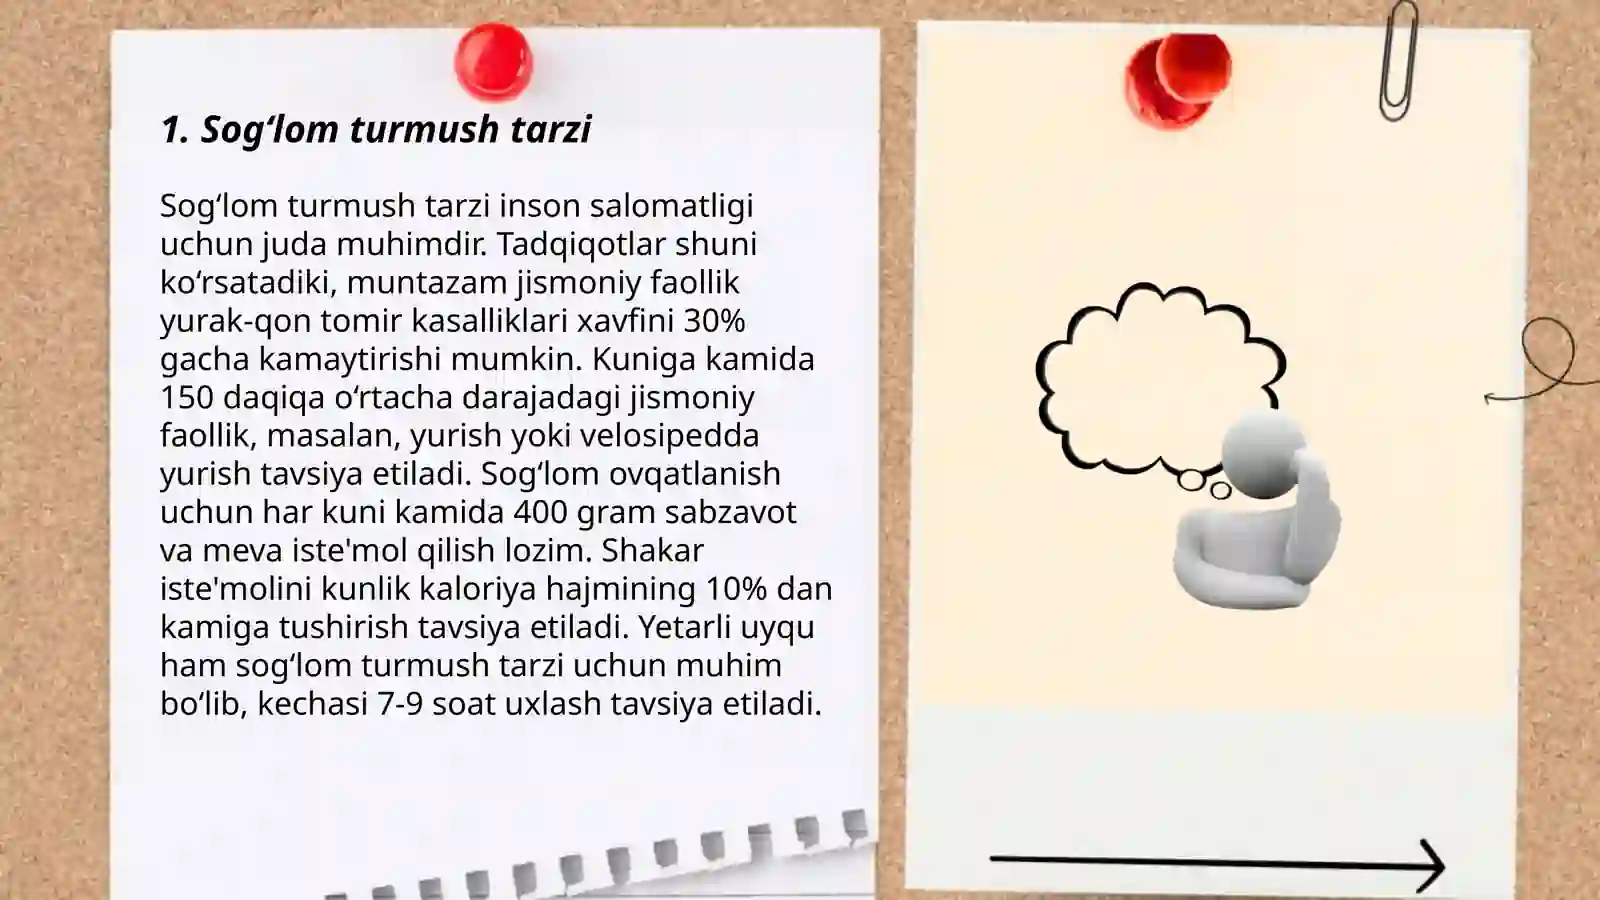 1. Sog‘lom turmush tarzi
Sog‘lom turmush tarzi inson salomatligi
uchun juda muhimdir. Tadqiqotlar shuni
ko‘rsatadiki, muntazam jismoniy faollik
yurak-qon tomir kasalliklari xavfini 30%
gacha kamaytirishi mumkin. Kuniga kamida
150 daqiqa o‘rtacha darajadagi jismoniy
faollik, masalan, yurish yoki velosipedda
yurish tavsiya etiladi. Sog‘lom ovqatlanish
uchun har kuni kamida 400 gram sabzavot
va meva iste'mol qilish lozim. Shakar
iste'molini kunlik kaloriya hajmining 10% dan
kamiga tushirish tavsiya etiladi. Yetarli uyqu
ham sog‘lom turmush tarzi uchun muhim
bo‘lib, kechasi 7-9 soat uxlash tavsiya etiladi.